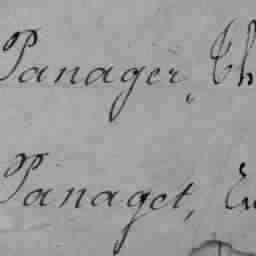 Panager, Th
Panaget, Eu